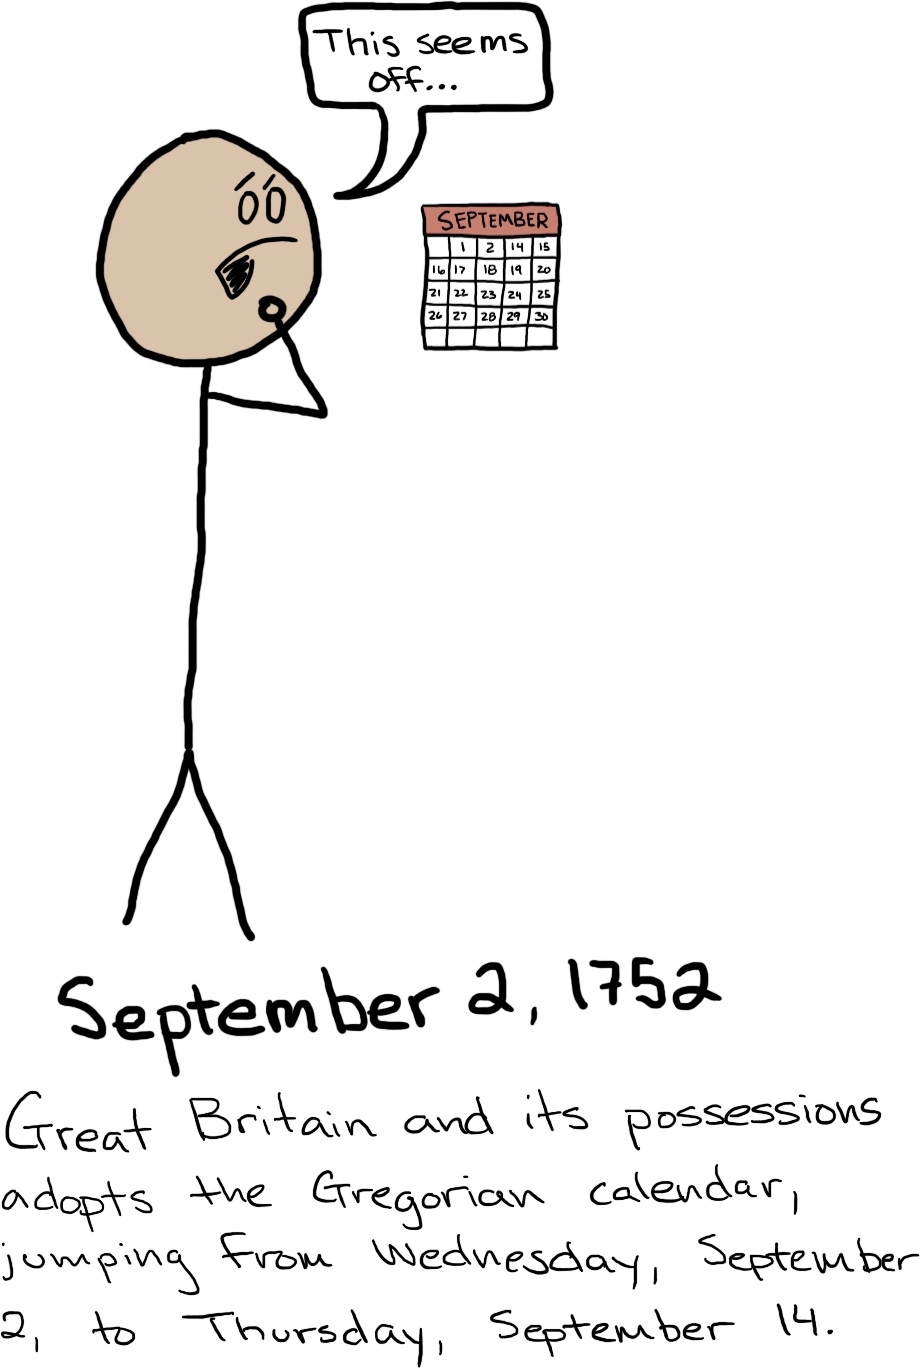 This seems
off...
SEPTEMBER
1 2 14 15
16 17 18 19 20
21 22 23 24 25
26 27 28 29 30
September 2, 1752
Great Britain and its possessions
adopts the Gregorian calendar,
jumping from Wednesday, September
2, to Thursday, September 14.